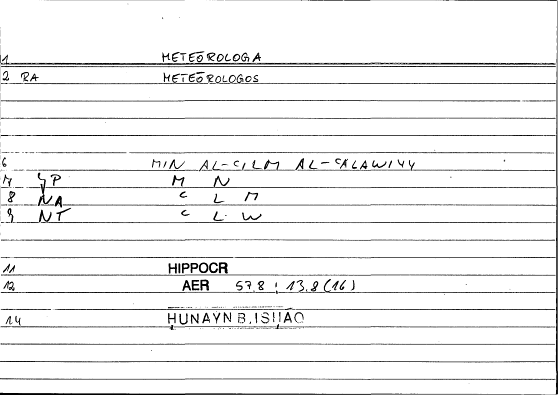 1 METEŌROLOGA
2 RA METEŌROLOGOS
6 MIN AL-CILM AL-CALAWIYY
M SP M N
8 NA C L M
9 NT C L W
11 HIPPOCR
12 AER 57.8 ; 13.8 (16)
14 HUNAYN B. ISHAQ